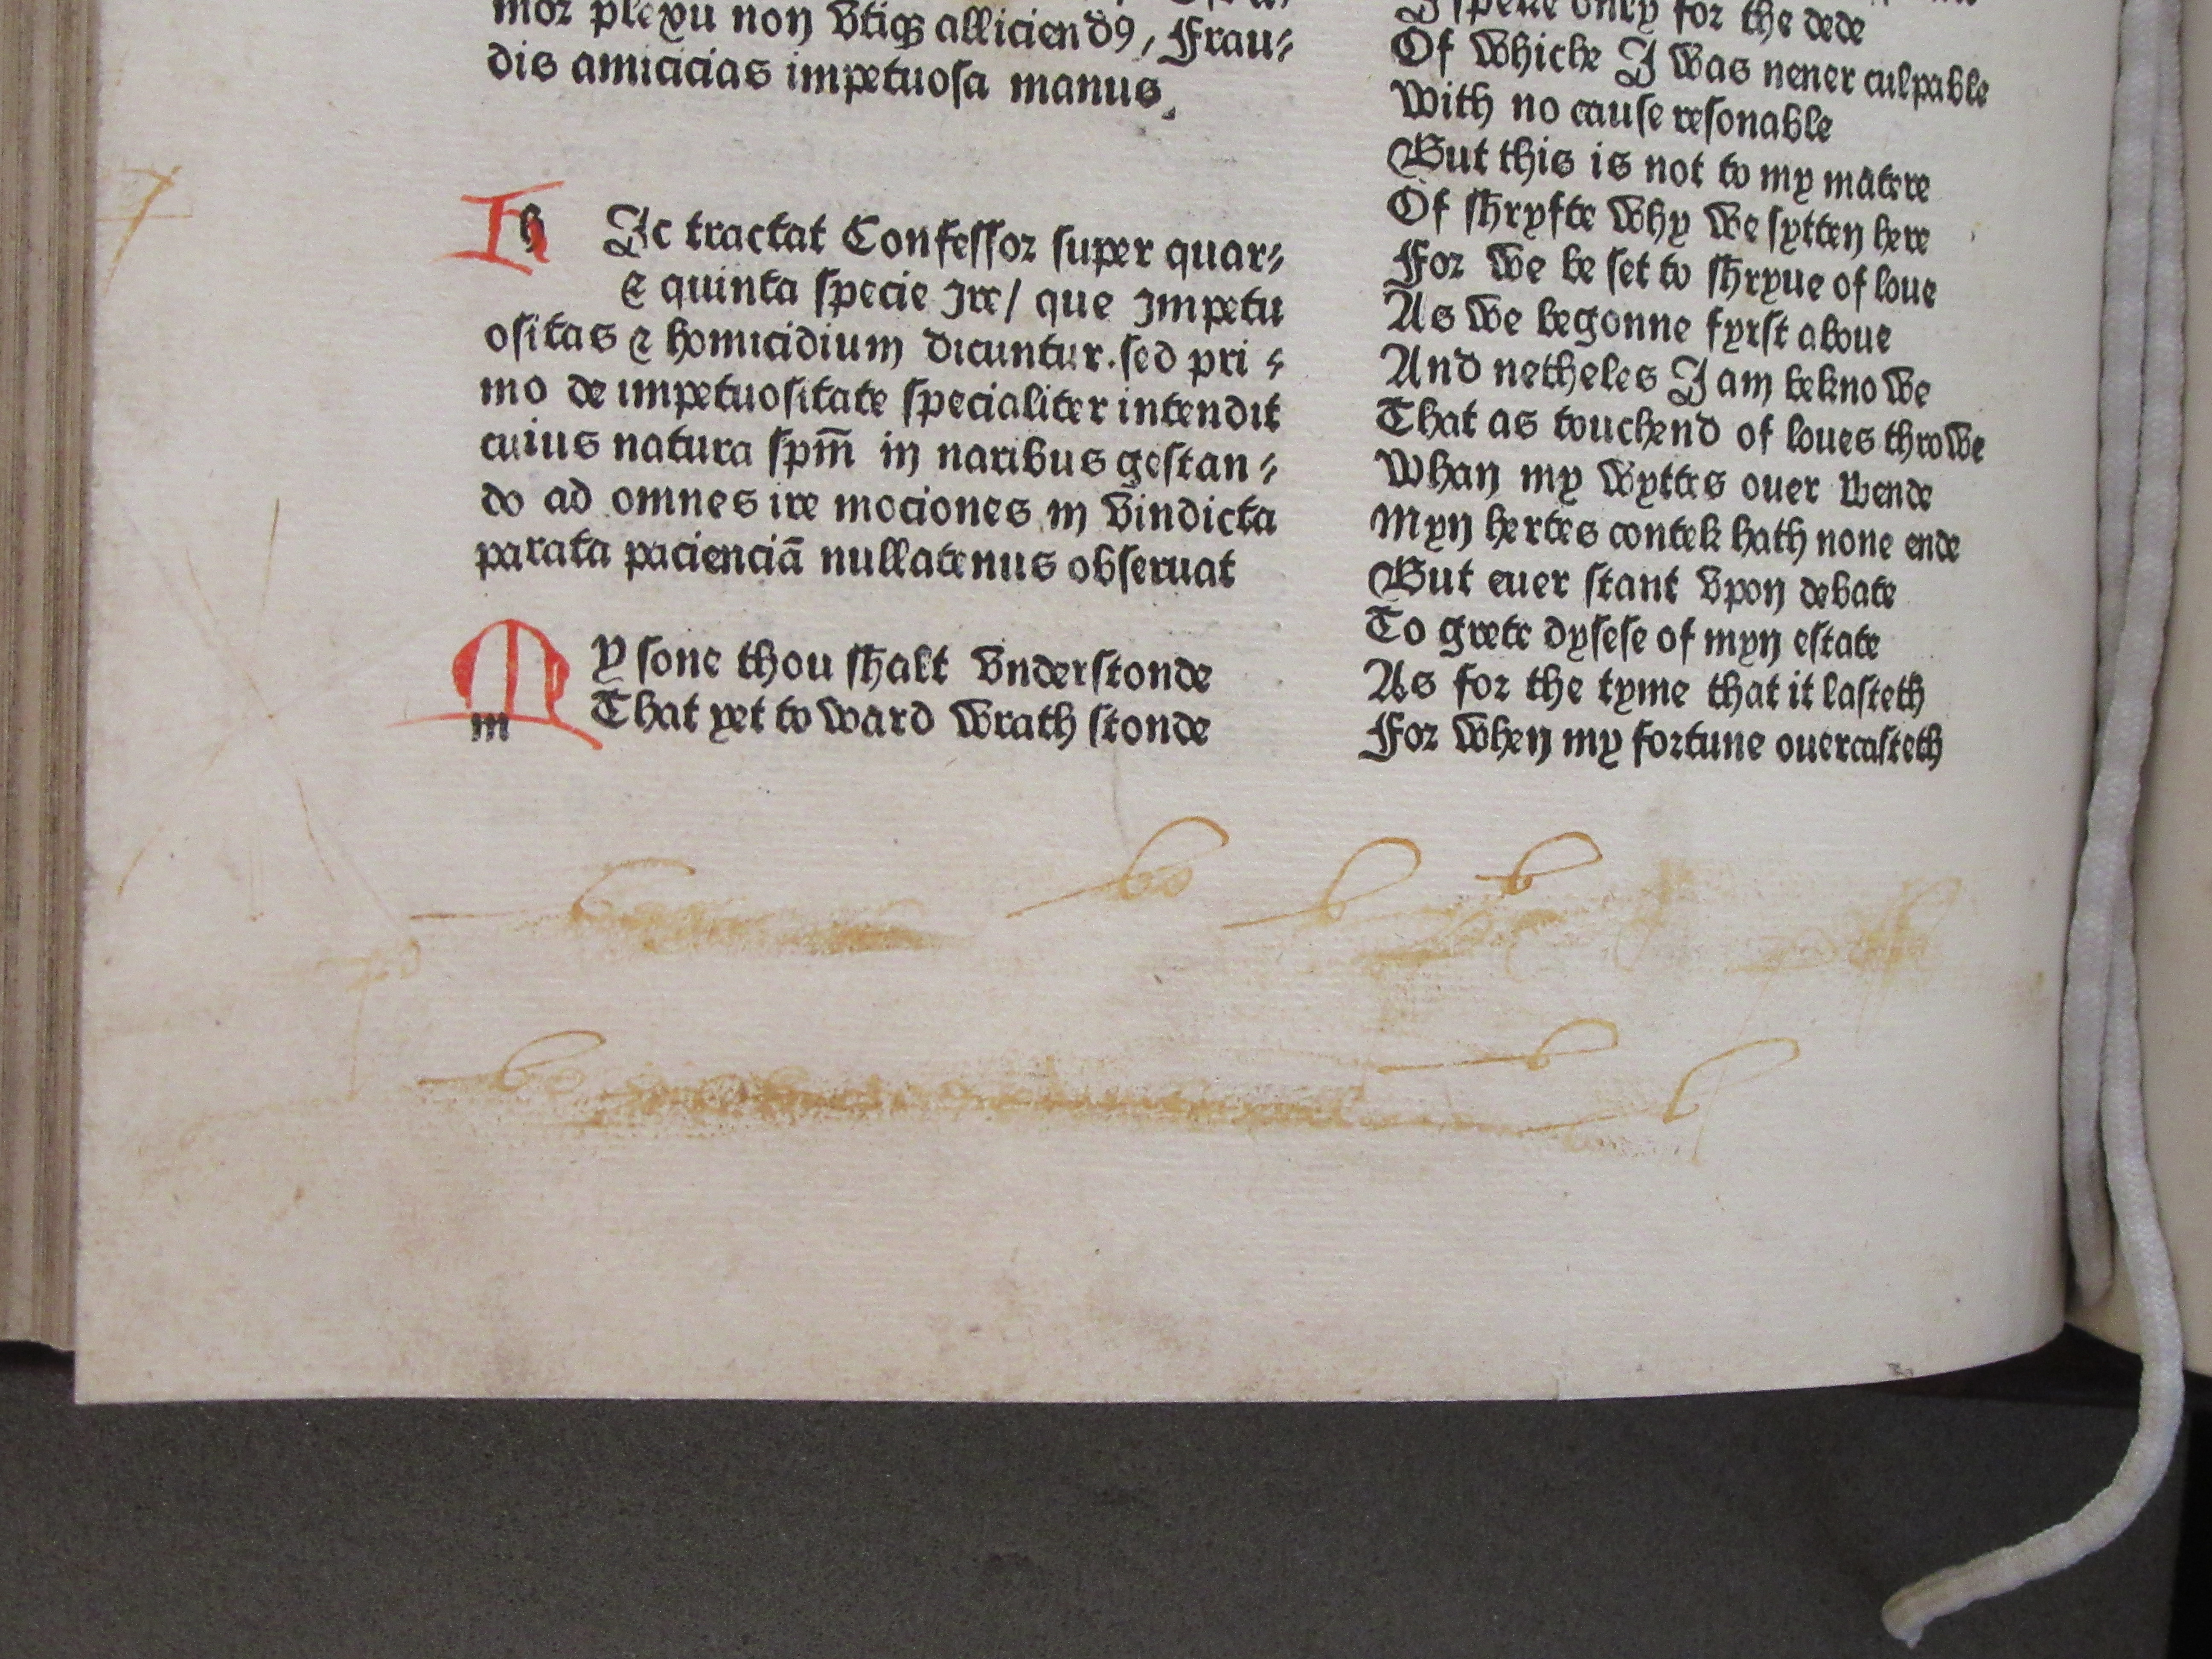 mor plexu non vtiqꝫ alliciendꝰ, Frau⸗
dis amicicias impetuosa manus.
h Ic tractat Confessor super quar⸗
⁊ quinta specie Ire/ que Impetu
ositas ⁊ homicidium dicuntur. sed pri⸗
mo de impetuositate specialiter intendit
cuius natura spm̄ in naribus gestan⸗
do ad omnes ire mociones in vindicta
parata pacienciā nullatenus obseruat
M m y sone thou shalt vnderstonde
That yet toward wrath stonde
I speke only for the dede
Of whiche I was neuer culpable
With no cause resonable
But this is not to my mātere
Of shryfte why we sytten here
For we be set to shryue of loue
As we begonne fyrst aboue
And netheles I am beknowe
That as touchend of loues throwe
Whan my wyttes ouer wende
Myn hertes contek hath none ende
But euer stant vpon debate
To grete dysese of myn estate
As for the tyme that it lasteth
For when my fortune ouercasteth
be
b
b
be
b
b